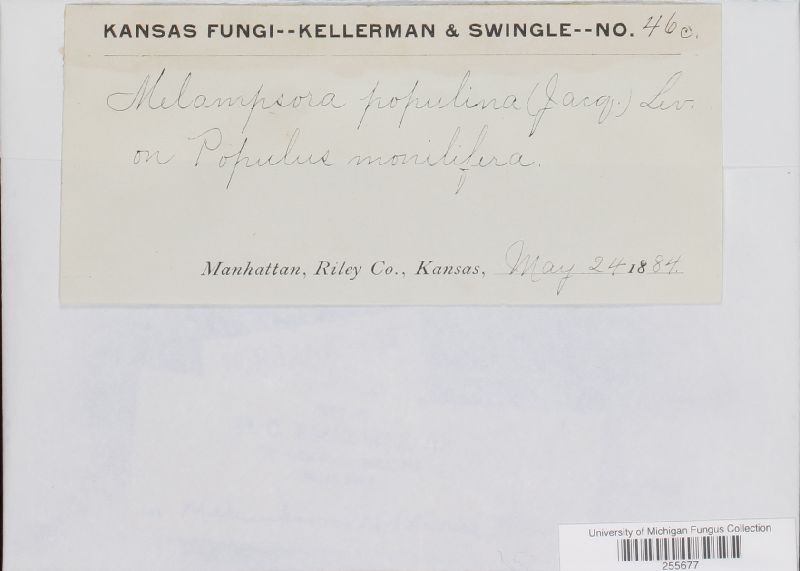 KANSAS FUNGI--KELLERMAN & SWINGLE--NO. 46c.
Melampsora populina (Jacq.) Lev.
on Populus monilifera.
Manhattan, Riley Co., Kansas, May 24 1884.
University of Michigan Fungus Collection
255677